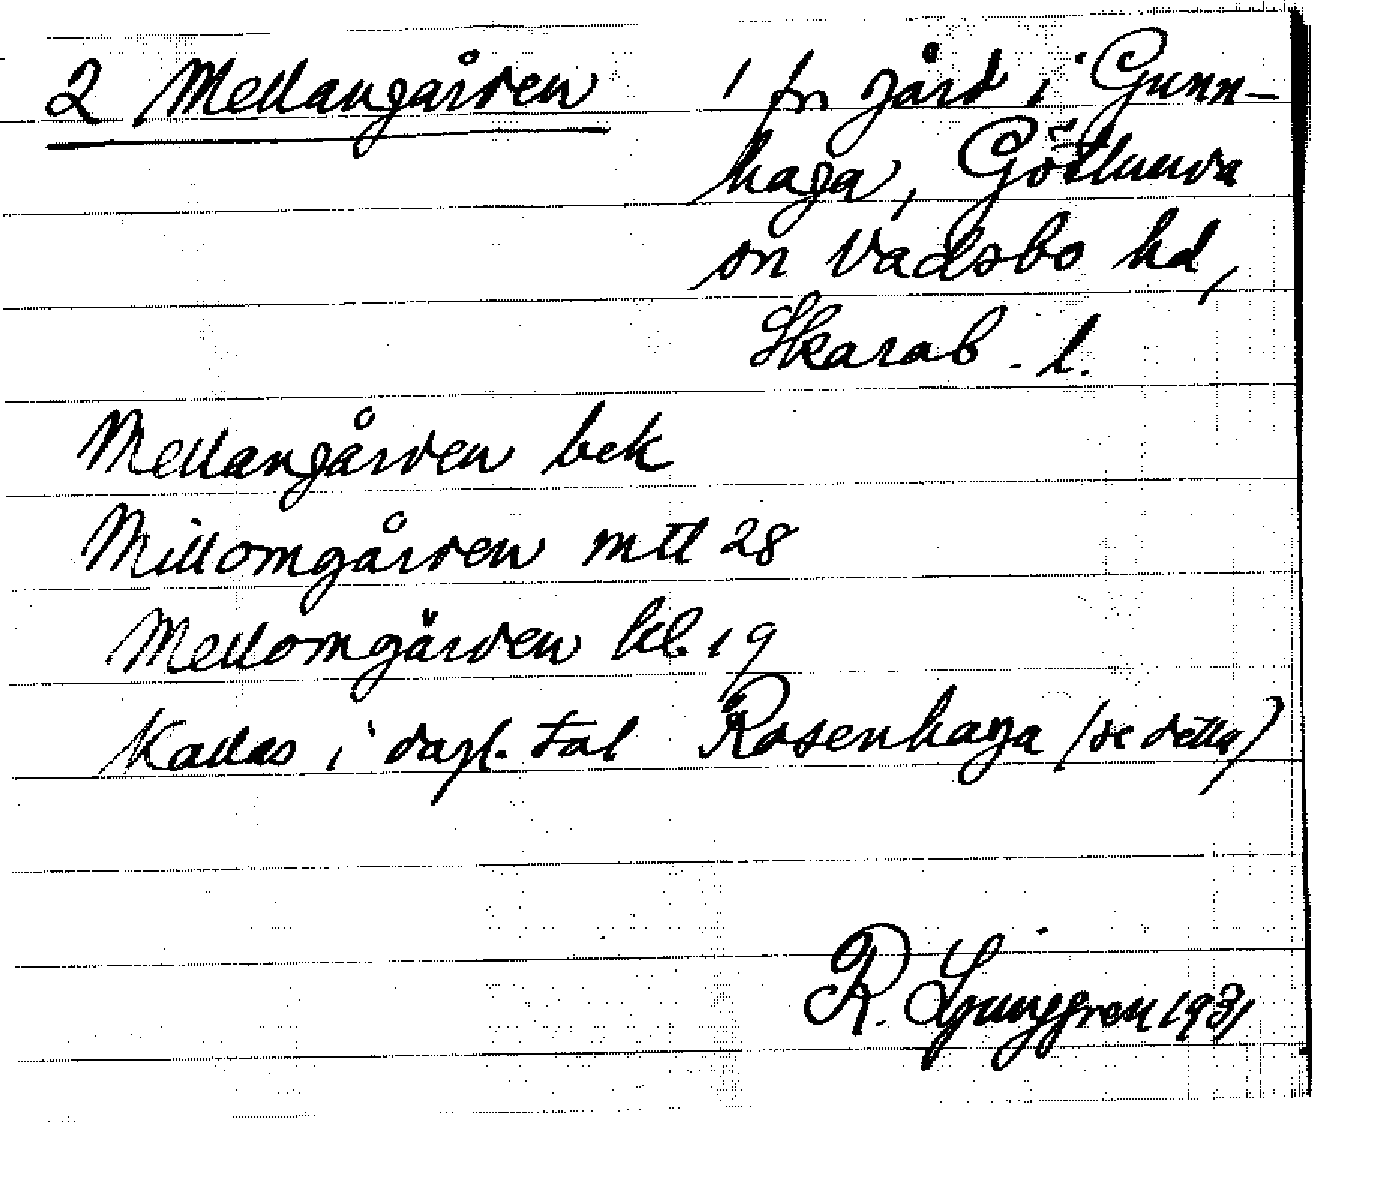 2 Mellangården 1 fm gård i Gunn-
haga, Götlunda
sn Vadsbo hd,
Skarab. l.
Mellangården bek
Millomgården mtl 28
Mellomgården kl. 19
Kallas i dagl. tal Rosenhaga (se detta)
R. Ljunggren 1931